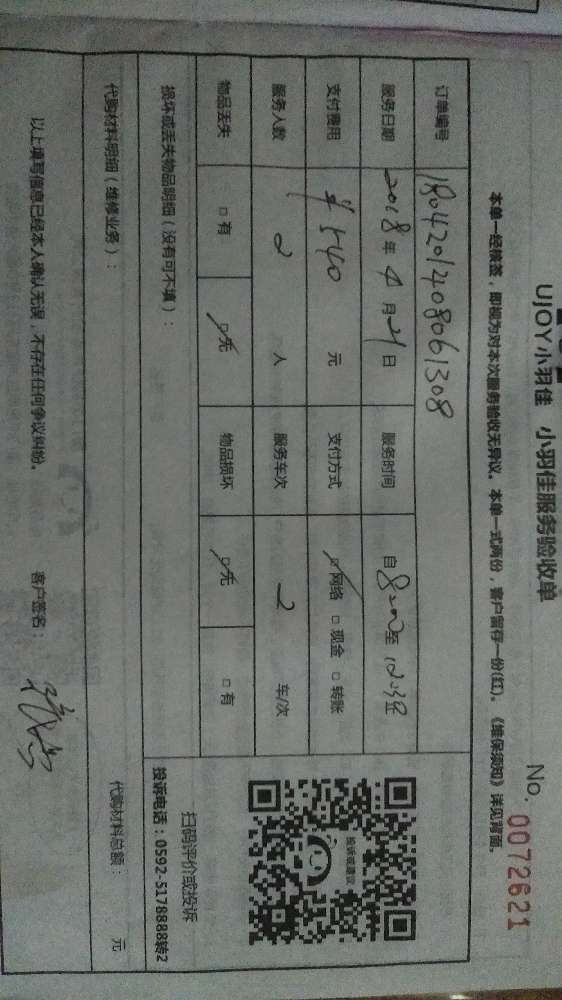 UJOY小羽佳 小羽佳服务验收单
No. 0072621
本单一经核签，即视为对本次服务验收无异议。本单一式两份，客户留存一份(红)。《维保须知》详见背面。
订单编号 1804201408061308
服务日期 2018年4月21日 服务时间 自8:00至12:30
支付费用 ¥540元 支付方式 ☑网络 □现金 □转账
服务人数 2人 服务车次 2车/次
物品丢失 □有 ☑无 物品损坏 ☑无 □有
损坏或丢失物品明细（没有可不填）：
扫码评价或投诉
投诉电话：0592-5178888转2
投诉或建议
代购材料明细（维修业务）： 代购材料总额： 元
以上填写信息已经本人确认无误，不存在任何争议纠纷。 客户签名：